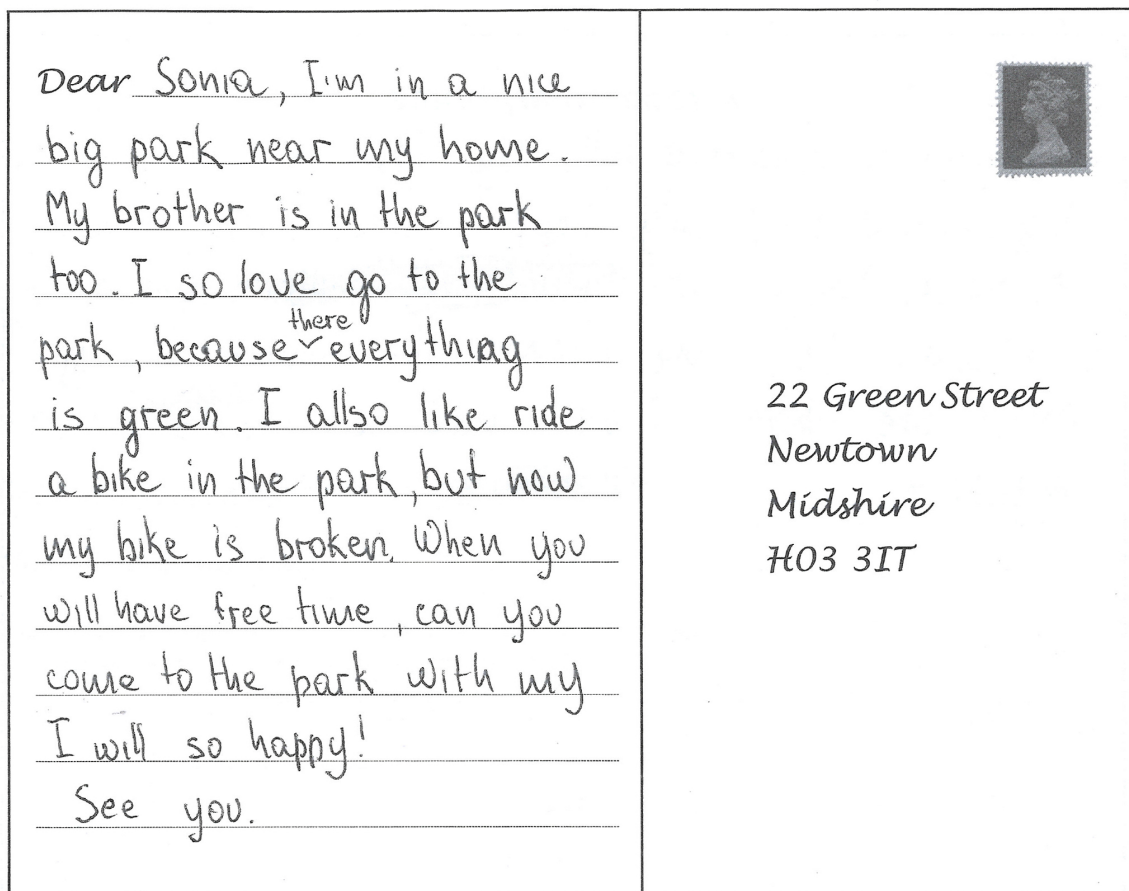 Dear Sonia, I'm in a nice
big park near my home.
My brother is in the park
too. I so love go to the
park, because there everything
is green. I allso like ride
a bike in the park, but now
my bike is broken. When you
will have free time, can you
come to the park with my
I will so happy!
See you.
22 Green Street
Newtown
Midshire
HO3 3IT